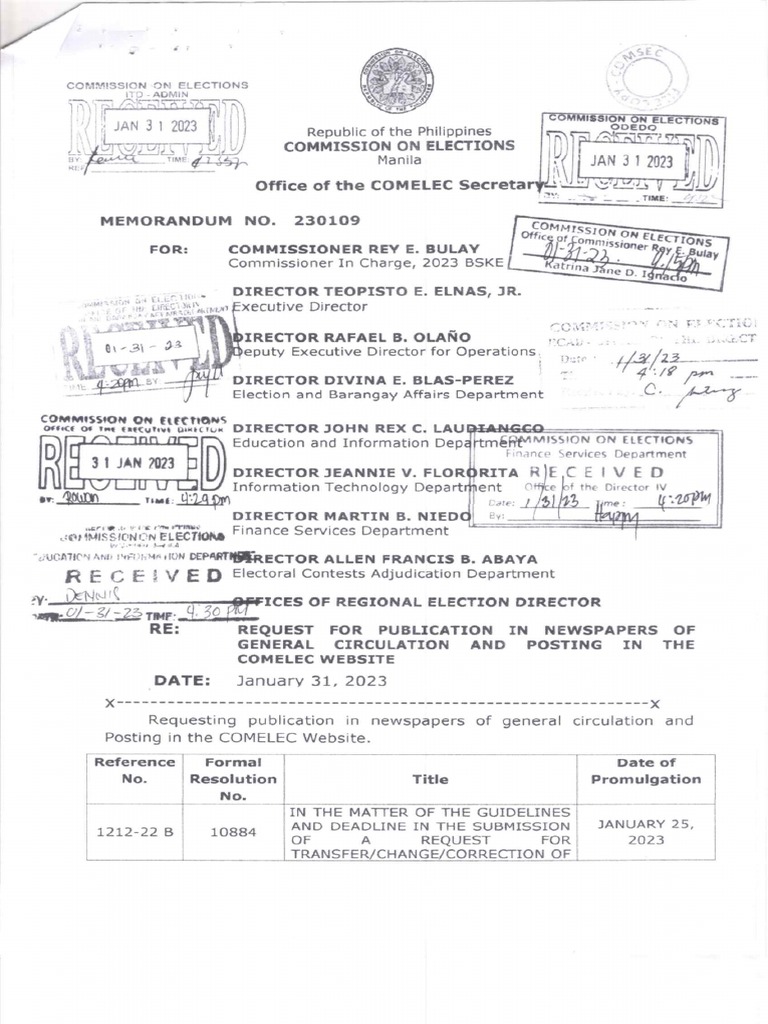 COMMISSION ON ELECTIONS
ITD - ADMIN
RECEIVED
JAN 31 2023
BY: TIME:
COMSEC
Republic of the Philippines
COMMISSION ON ELECTIONS
Manila
Office of the COMELEC Secretary
COMMISSION ON ELECTIONS
ODEDO
RECEIVED
JAN 31 2023
TIME:
MEMORANDUM NO. 230109
COMMISSION ON ELECTIONS
Office of Commissioner Rey E. Bulay
01-31-23
Katrina Jane D. Ignacio
FOR: COMMISSIONER REY E. BULAY
Commissioner In Charge, 2023 BSKE
DIRECTOR TEOPISTO E. ELNAS, JR.
Executive Director
RECEIVED
01-31-23
TIME: 4:20pm BY:
DIRECTOR RAFAEL B. OLAÑO
Deputy Executive Director for Operations
COMMISSION ON ELECTI
Date: 1/31/23
4:18 pm
DIRECTOR DIVINA E. BLAS-PEREZ
Election and Barangay Affairs Department
COMMISSION ON ELECTIONS
OFFICE OF THE EXECUTIVE DIRECTOR
RECEIVED
31 JAN 2023
BY: Rowen TIME: 4:29pm
DIRECTOR JOHN REX C. LAUDIANGCO
Education and Information Department
COMMISSION ON ELECTIONS
Finance Services Department
RECEIVED
Office of the Director IV
Date: 1/31/23 Time: 4:20pm
By:
DIRECTOR JEANNIE V. FLORORITA
Information Technology Department
DIRECTOR MARTIN B. NIEDO
Finance Services Department
COMMISSION ON ELECTIONS
EDUCATION AND INFORMATION DEPARTMENT
RECEIVED
BY: DENNIS
01-31-23 TIME: 4:30 PM
DIRECTOR ALLEN FRANCIS B. ABAYA
Electoral Contests Adjudication Department
OFFICES OF REGIONAL ELECTION DIRECTOR
RE: REQUEST FOR PUBLICATION IN NEWSPAPERS OF
GENERAL CIRCULATION AND POSTING IN THE
COMELEC WEBSITE
DATE: January 31, 2023
x------------------------------------------------------------------x
Requesting publication in newspapers of general circulation and
Posting in the COMELEC Website.
Reference No. Formal Resolution No. Title Date of Promulgation
1212-22 B 10884 IN THE MATTER OF THE GUIDELINES JANUARY 25, 2023
AND DEADLINE IN THE SUBMISSION
OF A REQUEST FOR
TRANSFER/CHANGE/CORRECTION OF